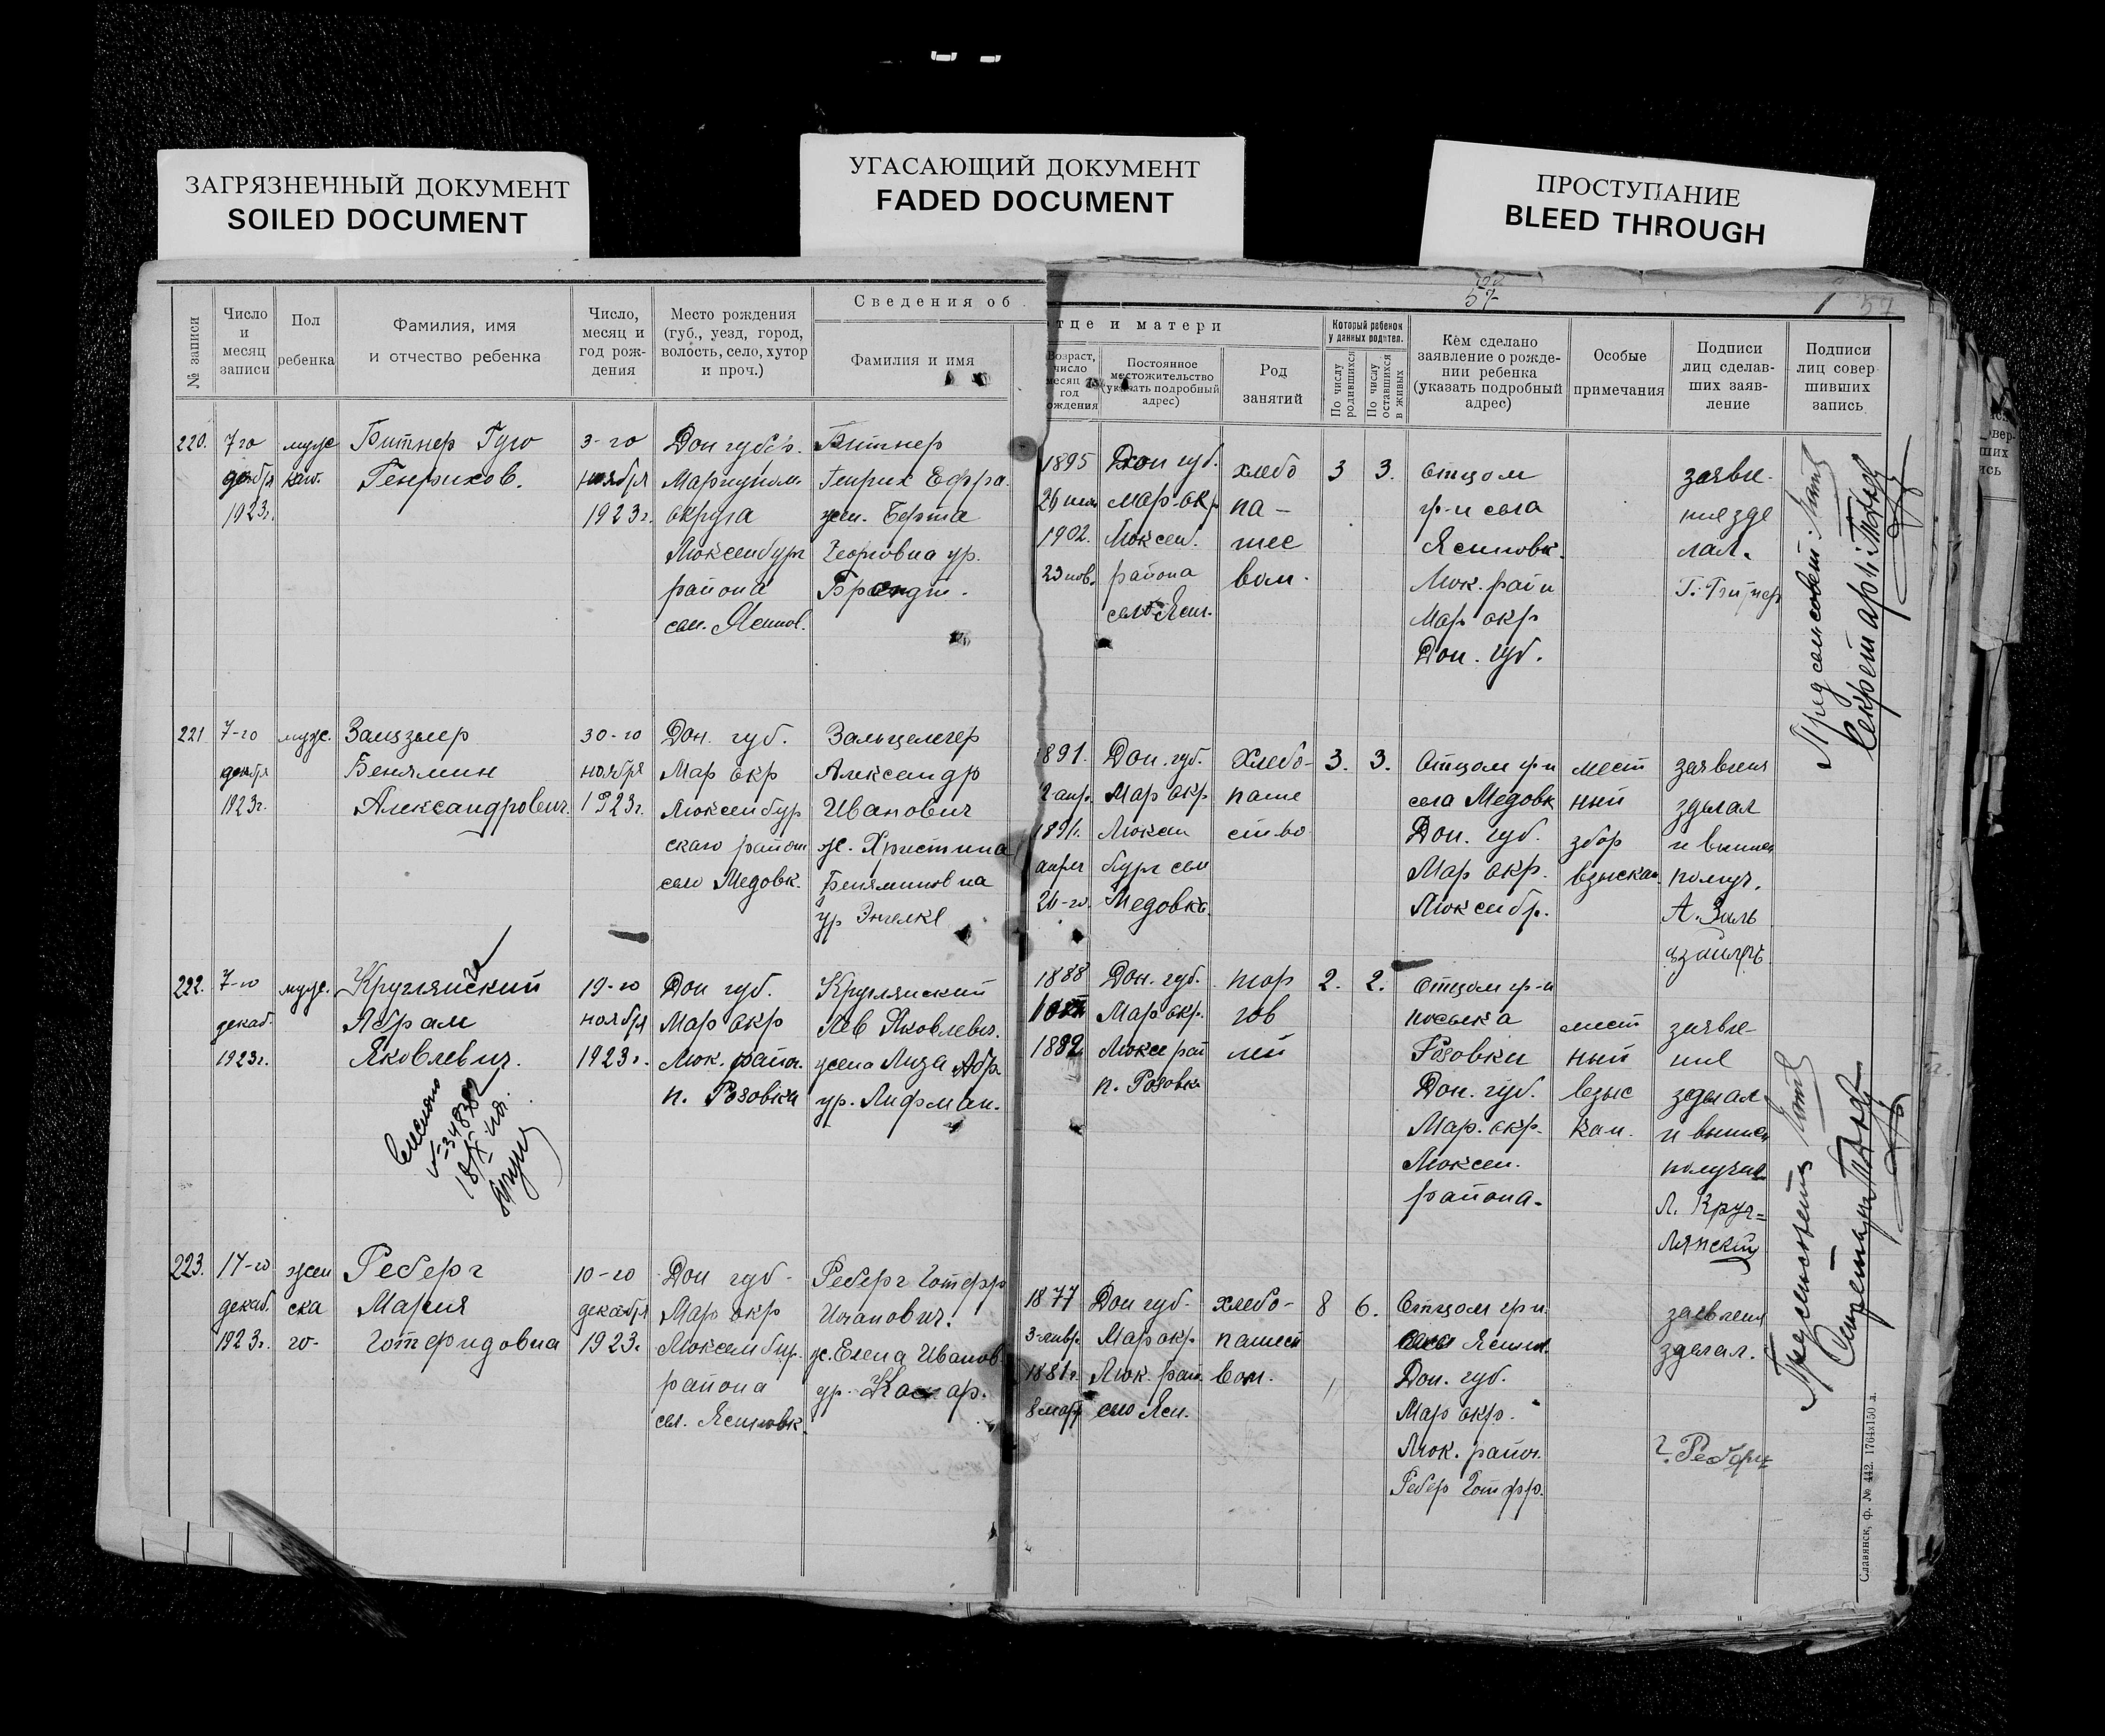 ЗАГРЯЗНЕННЫЙ ДОКУМЕНТ
SOILED DOCUMENT
УГАСАЮЩИЙ ДОКУМЕНТ
FADED DOCUMENT
ПРОСТУПАНИЕ
BLEED THROUGH
57
57
№ записи
Число
и
месяц
записи
Пол
ребенка
Фамилия, имя
и отчество ребенка
Число,
месяц и
год рож-
дения
Место рождения
(губ., уезд, город,
волость, село, хутор
и проч.)
Сведения об
Фамилия и имя
тце и матери
Возраст,
число
месяц
год
ождения
Постоянное
местожительство
(указать подробный
адрес)
Род
занятий
Который ребенок
у данных родител.
По числу
родившихся
По числу
оставшихся
в живых
Кем сделано
заявление о рожде-
нии ребенка
(указать подробный
адрес)
Особые
примечания
Подписи
лиц сделав-
ших заяв-
ление
Подписи
лиц совер
шивших
запись
220.
7-го
декабря
1923г.
муж
ског.
Битнер Гуго
Генрихов.
3-го
ноября
1923г.
Дон губ.
Мариупол.
округа
Люксембург
района
сел. Яснов.
Битнер
Генрих
жен. Берта
Георговна ур.
Брандт.
1895
26 июн
1902.
23 нов.
Дон губ.
Мар. окр
Люксем.
района
село Ясин.
хлебо
па -
шес
вом.
3
3.
Отцом
гр-н села
Ясиновк.
Люк. райн
Мар окр
Дон. губ.
заявле-
ние зде
лал.
221
7-го
декбря
1923г.
муж.
Занззлер
Бенямин
Александрович.
30-го
ноября
1923г.
Дон. губ.
Мар окр
Люксембур
скаго район
село Медовк.
Зальцлегер
Александр
Иванович
ж. Христина
Беняминовна
ур Энгелке
1891.
2-апр.
1891.
апрля
24-го.
Дон. губ.
Мар окр
Люксем
бург сел
Медовка
Хлебо-
паше
ство
3.
3.
Отцом гр-н
села Медовк
Дон. губ.
Мар окр.
Люксембр.
мест
ный
збор
взыскан.
заявления
зделал
и выпис
получ.
А. Заль
222.
7-го
декаб.
1923г.
муж.
Круглянский
Абрам
Яковлевич.
19-го
ноября
1923г.
Дон губ.
Мар окр
Люк. район.
п. Розовка
Круглянский
Лев Яковлевич.
жена Лиза Абр.
ур. Лифман.
1888
1882
Дон. губ.
Мар окр.
Люксе рай
п. Розовка
тор
гов
лей
2.
2.
Отцом гр-н
поселка
Розовки
Дон. губ.
Мар. окр.
Люксем.
района.
мест
ный
взыс
кан.
заявле-
ние
зделал
и выпис
получил
Л. Круг=
лянский
223.
17-го
декаб.
1923г.
жен
ска
го-
Реберг
Мария
Готфридовна
10-го
декабря
1923.
Дон губ-
Мар окр
Люксембур.
района
сел. Ясиновк.
Реберг Готфр
Иоганович.
ж. Елена Иванов
ур. Каспар.
1877
3-янвр.
1881г.
8 март
Дон губ.
Мар окр.
Люк. рай.
село Ясн.
хлебо-
пашест
вом.
8
6.
Отцом гр-н
села Ясинов.
Дон. губ.
Мар окр.
Люк. район.
Ребер Готфр.
заявления
зделал.
Г. Реберг
Славянск, ф. № 442. 1764х150 л.